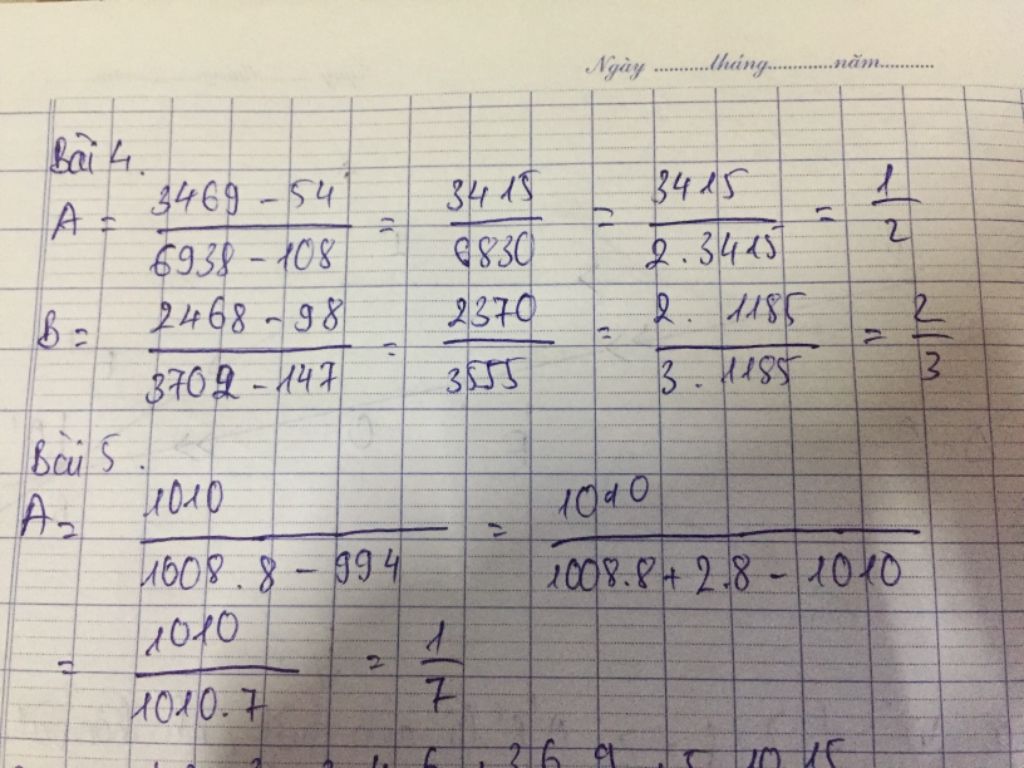 Ngày ...........tháng............năm..........
Bài 4.
A = (3469 - 54)/(6938 - 108) = 3415/6830 = 3415/(2 . 3415) = 1/2
B = (2468 - 98)/(3702 - 147) = 2370/3555 = (2 . 1185)/(3 . 1185) = 2/3
Bài 5.
A = 1010/(1008 . 8 - 994) = 1010/(1008.8 + 2.8 - 1010)
= 1010/(1010.7) = 1/7